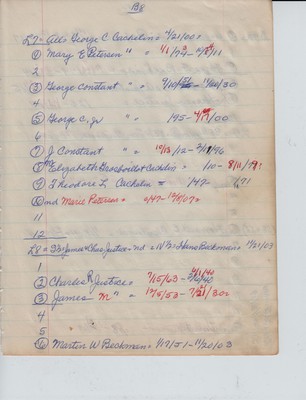 138
L7 = All = George C Cachelin = 4/21/00 =
① Mary E Peterson " = 4/1/79 -
2
③ George Constant " = 9/10/ - 11/20/30
4
⑤ George C, Jr " = /95 - 4/ /00
6
⑦ J Constant " = 10/13/12 - 2/ /96
⑧ Elizabeth Cachelin = /10 - 8/11/
⑨ Theodore L Cachelin = /47 - /71
⑩ md Marie Peterson = /47 - 12/8/07 =
11
12
L8 = James + Chas Justice = Nd + W½ = Hans Beckman = 11/21/03
1
② Charles R Justice = 7/15/63 -
③ James M " = 12/5/53 - 7/ /30 =
4
5
⑥ Martin W Beckman = 1/17/51 - 11/20/03